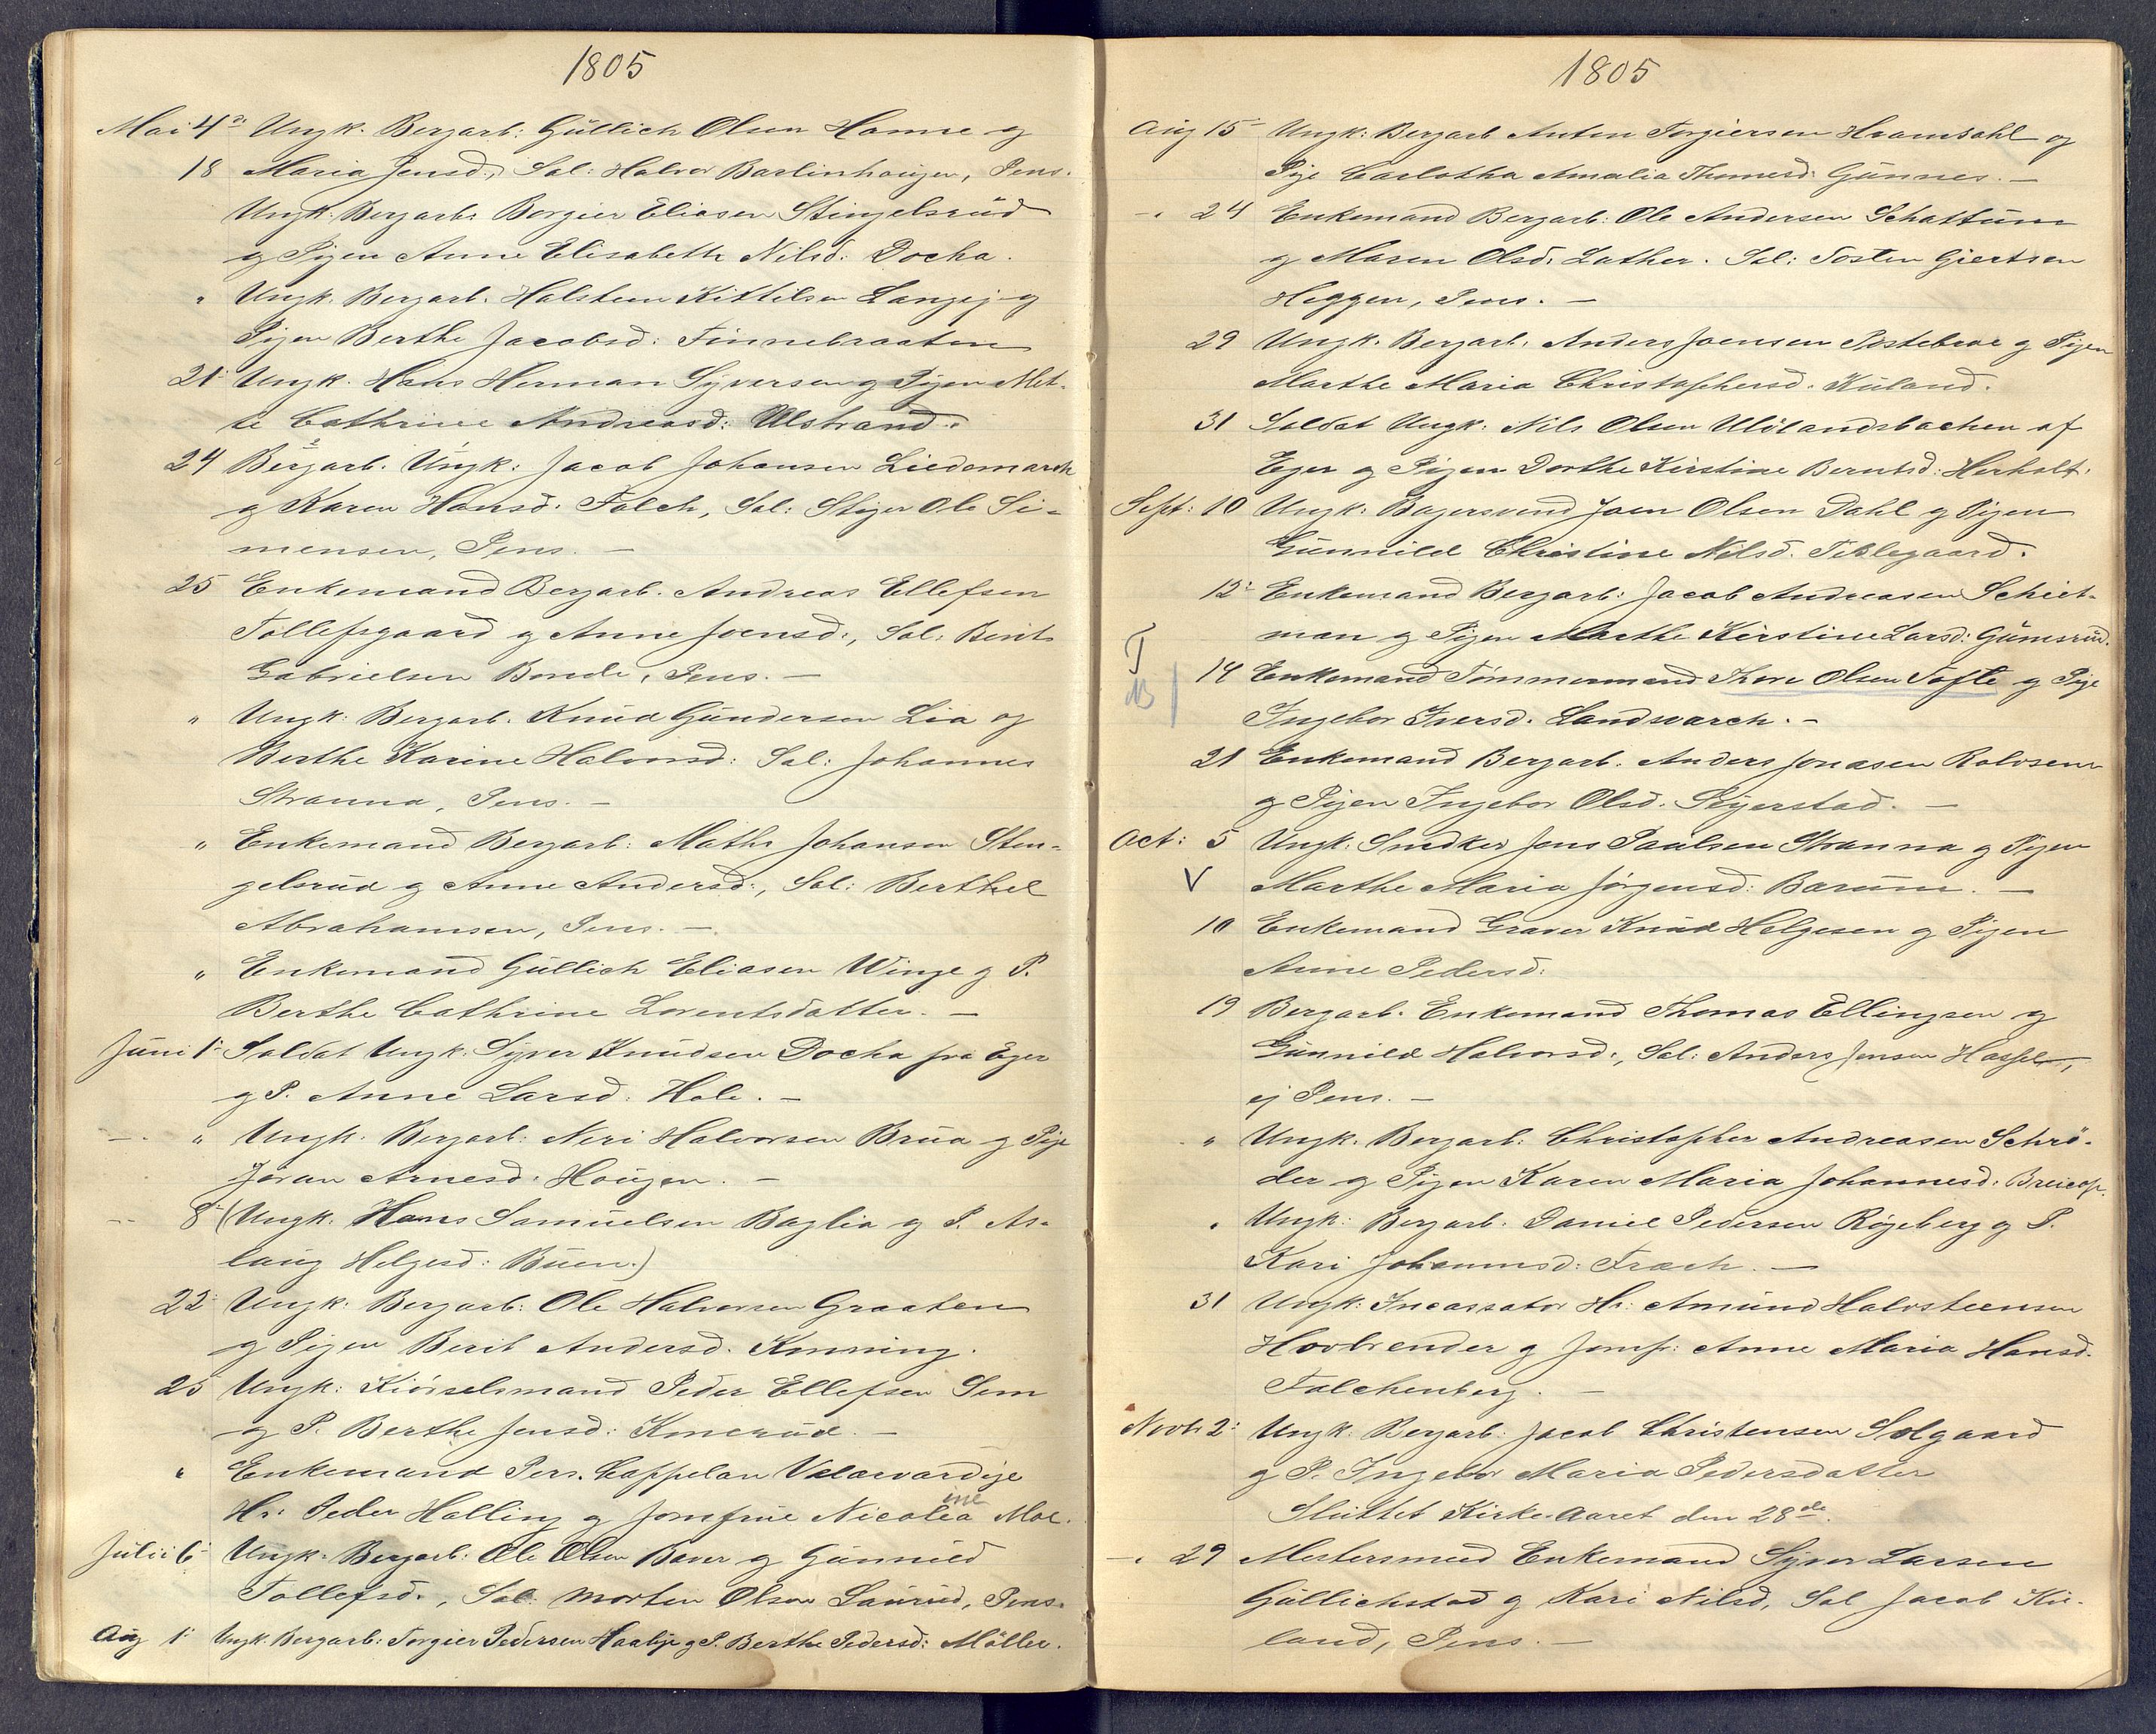 1805
Mai 4de Ungk. Bergarb: Güllich Olsen Hanne og
18 Maria Jensd:, Sal: Halvor Barlinhaugen, Pens.
Ungk: Bergarb: Borgier Eliasen Stingelsrüd
og Pigen Anne Elisabeth Nilsd: Docka.
" Ungk. Bergarb. Halsteen Kittilsen Langej og
Pigen Berthe Jacobsd: Finnebraaten
21: Ungk. Hans Herman Syversen og Pigen Met-
te Cathrine Andreasd: Ulstrand.
24 Bergarb. Ungk: Jacob Johansen Liedemarck
og Karen Hansd: Falch, Sal: Stiger Ole Si-
mensen, Pens. —
25 Enkemand Bergarb. Andreas Ellefsen
Tollefsgaard og Anne Joensd:, Sal: Berit
Gabrielsen Bonde, Pens. —
" Ungk: Bergarb. Knud Gundersen Lia og
Berthe Karine Halvorsd: Sal: Johannes
Stranna, Pens. —
" Enkemand Bergarb: Maths Johansen Sten-
gelsrud og Anne Andersd:, Sal: Berthel
Abrahamsen, Pens. —
" Enkemand Güllich Eliasen Winge og P.
Berthe Cathrine Lorentsdatter. —
Juni 1: Soldat Ungk: Syver Knudsen Docka fra Eger
og P. Anne Larsd. Hole. —
—. " Ungk. Bergarb: Neri Halvorsen Brua og Pige
Jøran Arnesd: Hougen. —
— 8: (Ungk. Hans Samuelsen Baglia og P. As-
laug Helgesd: Buen.)
22: Ungk: Bergarb: Ole Halvorsen Graaten
og Pigen Berit Andersd. Konning.
25 Ungk: Kiørselsmand Peder Ellefsen Sem
og P. Berthe Jensd: Knerud. —
" Enkemand Pers. Cappelan Velærværdige
ine
Hr: Peder Halling og Jomfrue Nicolea Moe.
Julii 6: Ungk: Bergarb: Ole Olsen Baver og Gunnild
Tollefsd:, Sal: Morten Olsen Laurud, Pens.
Aug 1: Ungk. Bergarb: Torgier Pedersen Haabye og P. Berthe Pedersd: Møller.
1805
Aug 15: Ungk: Bergarb. Anton Torgiersen Hvamdahl og
Pige Carlotha Amalia Thomesd: Gunnes. —
—. 24 Enkemand Bergarb: Ole Andersen Schattum
og Maren Olsd: Lather. Sal: Tosten Giertsen
Heggen, Pens. —
29 Ungk. Bergarb. Anders Joensen Pistebroe og Pigen
Marthe Maria Christophersd. Kuland.
31 Soldat Ungk: Nils Olsen Ulølandsbachen af
Eger og Pigen Dorthe Kirstine Berntsd: Herholt.
Sept: 10 Ungk: Bagersvend Joen Olsen Dahl og Pigen
Gunnild Christine Nilsd. Teblegaard.
12: Enkemand Bergarb: Jacob Andreasen Schiet-
man og Pigen Marthe Kirstine Larsd: Gumsrud.
T
B
14 Enkemand Tømmermand Thore Olsen Tofte og Pige
Ingebor Iversd. Landsvarch. —
21 Enkemand Bergarb. Anders Jonasen Rolvsen
og Pigen Ingebor Olsd. Seyerstad. —
Oct: 5 Ungk: Snedker Jens Paulsen Stranna og Pigen
V Marthe Maria Jørgensd: Barum. —
10 Enkemand Graver Knud Helgesen og Pigen
Anne Pedersd:
19 Bergarb. Enkemand Thomas Ellingsen og
Gunnild Halvorsd:, Sal: Anders Jensen Hassel,
ej Pens. —
" Ungk. Bergarb: Christopher Andreasen Schrø-
der og Pigen Karen Maria Johannesd: Breicop.
" Ungk: Bergarb. Daniel Pedersen Røgeberg og P.
Kari Johannesd: Træch. —
31 Ungk: Incassator Hr: Amund Halvsteensen
Hovbrender og Jomfr: Anne Maria Hansd.
Falchenberg. —
Novbr 2: Ungk. Bergarb: Jacob Christensen Solgaard
og P. Ingebor Maria Pedersdatter
Sluttet Kirke-Aaret den 28de.
—. 29 Mestersmed Enkemand Syver Larsen
Güllichstad og Kari Nilsd, Sal Jacob Ku-
land, Pens. —